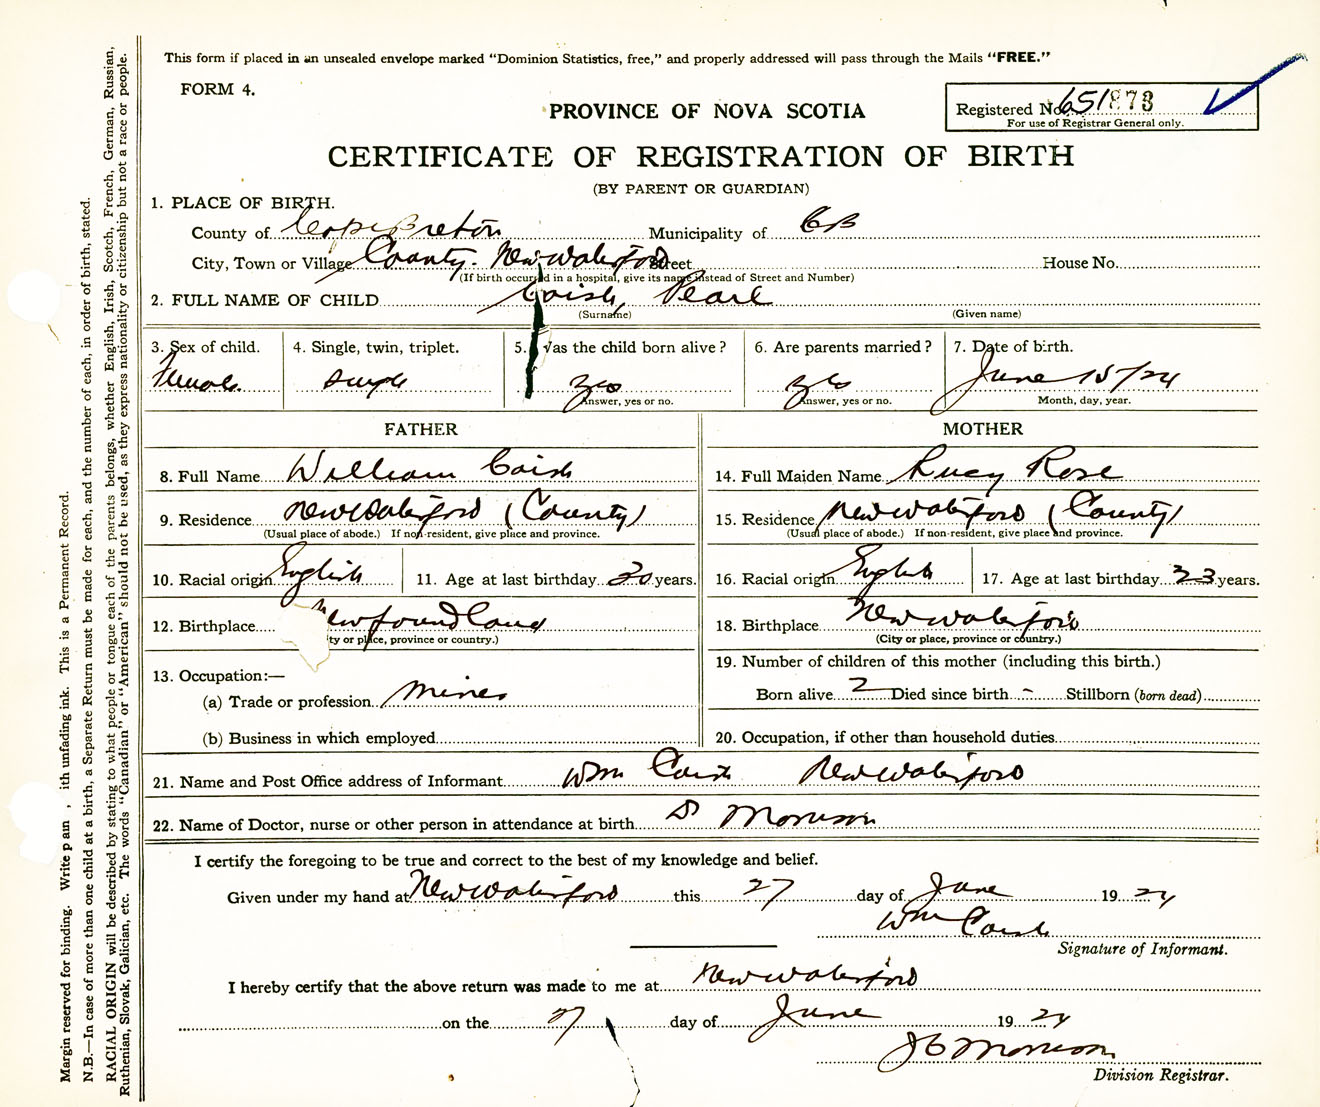 This form if placed in an unsealed envelope marked "Dominion Statistics, free," and properly addressed will pass through the Mails "FREE."
FORM 4.
Registered No. 651873
For use of Registrar General only.
PROVINCE OF NOVA SCOTIA
CERTIFICATE OF REGISTRATION OF BIRTH
(BY PARENT OR GUARDIAN)
1. PLACE OF BIRTH.
County of Cape Breton Municipality of CB
City, Town or Village County. New Waterford Street House No.
(If birth occurred in a hospital, give its name instead of Street and Number)
2. FULL NAME OF CHILD Caish, Pearl
(Surname) (Given name)
3. Sex of child. 4. Single, twin, triplet. 5. Was the child born alive? 6. Are parents married? 7. Date of birth.
Female single yes yes June 15/24
Answer, yes or no. Answer, yes or no. Month, day, year.
FATHER MOTHER
8. Full Name William Caish 14. Full Maiden Name Lucy Rose
9. Residence New Waterford (County) 15. Residence New Waterford (County)
(Usual place of abode.) If non-resident, give place and province. (Usual place of abode.) If non-resident, give place and province.
10. Racial origin English 11. Age at last birthday 30 years. 16. Racial origin English 17. Age at last birthday 23 years.
12. Birthplace Newfoundland 18. Birthplace New Waterford
ty or place, province or country.) (City or place, province or country.)
13. Occupation:— 19. Number of children of this mother (including this birth.)
(a) Trade or profession Miner Born alive 2 Died since birth - Stillborn (born dead)
(b) Business in which employed 20. Occupation, if other than household duties
21. Name and Post Office address of Informant Wm Caish New Waterford
22. Name of Doctor, nurse or other person in attendance at birth Dr Morrison
I certify the foregoing to be true and correct to the best of my knowledge and belief.
Given under my hand at New Waterford this 27 day of June 1924
Wm Caish
Signature of Informant.
I hereby certify that the above return was made to me at New Waterford
on the 27 day of June 1924
J C Morrison
Division Registrar.
Margin reserved for binding. Write p am , ith unfading ink. This is a Permanent Record.
N.B.—In case of more than one child at a birth, a Separate Return must be made for each, and the number of each, in order of birth, stated.
RACIAL ORIGIN will be described by stating to what people or tongue each of the parents belongs, whether English, Irish, Scotch, French, German, Russian,
Ruthenian, Slovak, Galician, etc. The words "Canadian" or "American" should not be used, as they express nationality or citizenship but not a race or people.